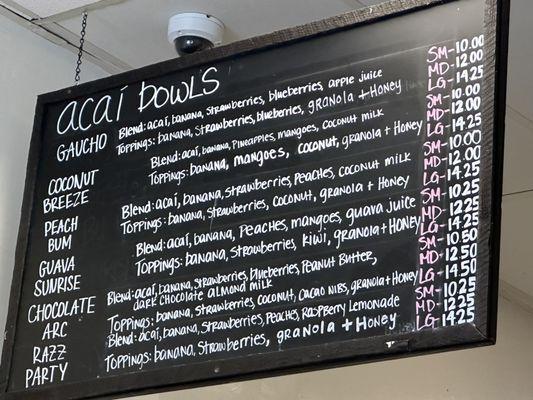 açaí BOWLS
GAUCHO
Blend: açaí, banana, strawberries, blueberries, apple juice
Toppings: banana, strawberries, blueberries, granola + Honey
SM-10.00
MD-12.00
LG-14.25
COCONUT
BREEZE
Blend: açaí, banana, pineapples, mangoes, coconut milk
Toppings: banana, mangoes, coconut, granola + Honey
SM-10.00
MD-12.00
LG-14.25
PEACH
BUM
Blend: açaí, banana, strawberries, peaches, coconut milk
Toppings: banana, strawberries, coconut, granola + Honey
SM-10.00
MD-12.00
LG-14.25
GUAVA
SUNRISE
Blend: açaí, banana, peaches, mangoes, guava juice
Toppings: banana, strawberries, kiwi, granola + Honey
SM-10.25
MD-12.25
LG-14.25
CHOCOLATE
ARC
Blend: açaí, banana, strawberries, blueberries, Peanut Butter,
dark chocolate almond milk
Toppings: banana, strawberries, coconut, cacao nibs, granola + Honey
SM-10.50
MD-12.50
LG-14.50
RAZZ
PARTY
Blend: açaí, banana, strawberries, Peaches, Raspberry Lemonade
Toppings: banana, strawberries, granola + Honey
SM-10.25
MD-12.25
LG-14.25